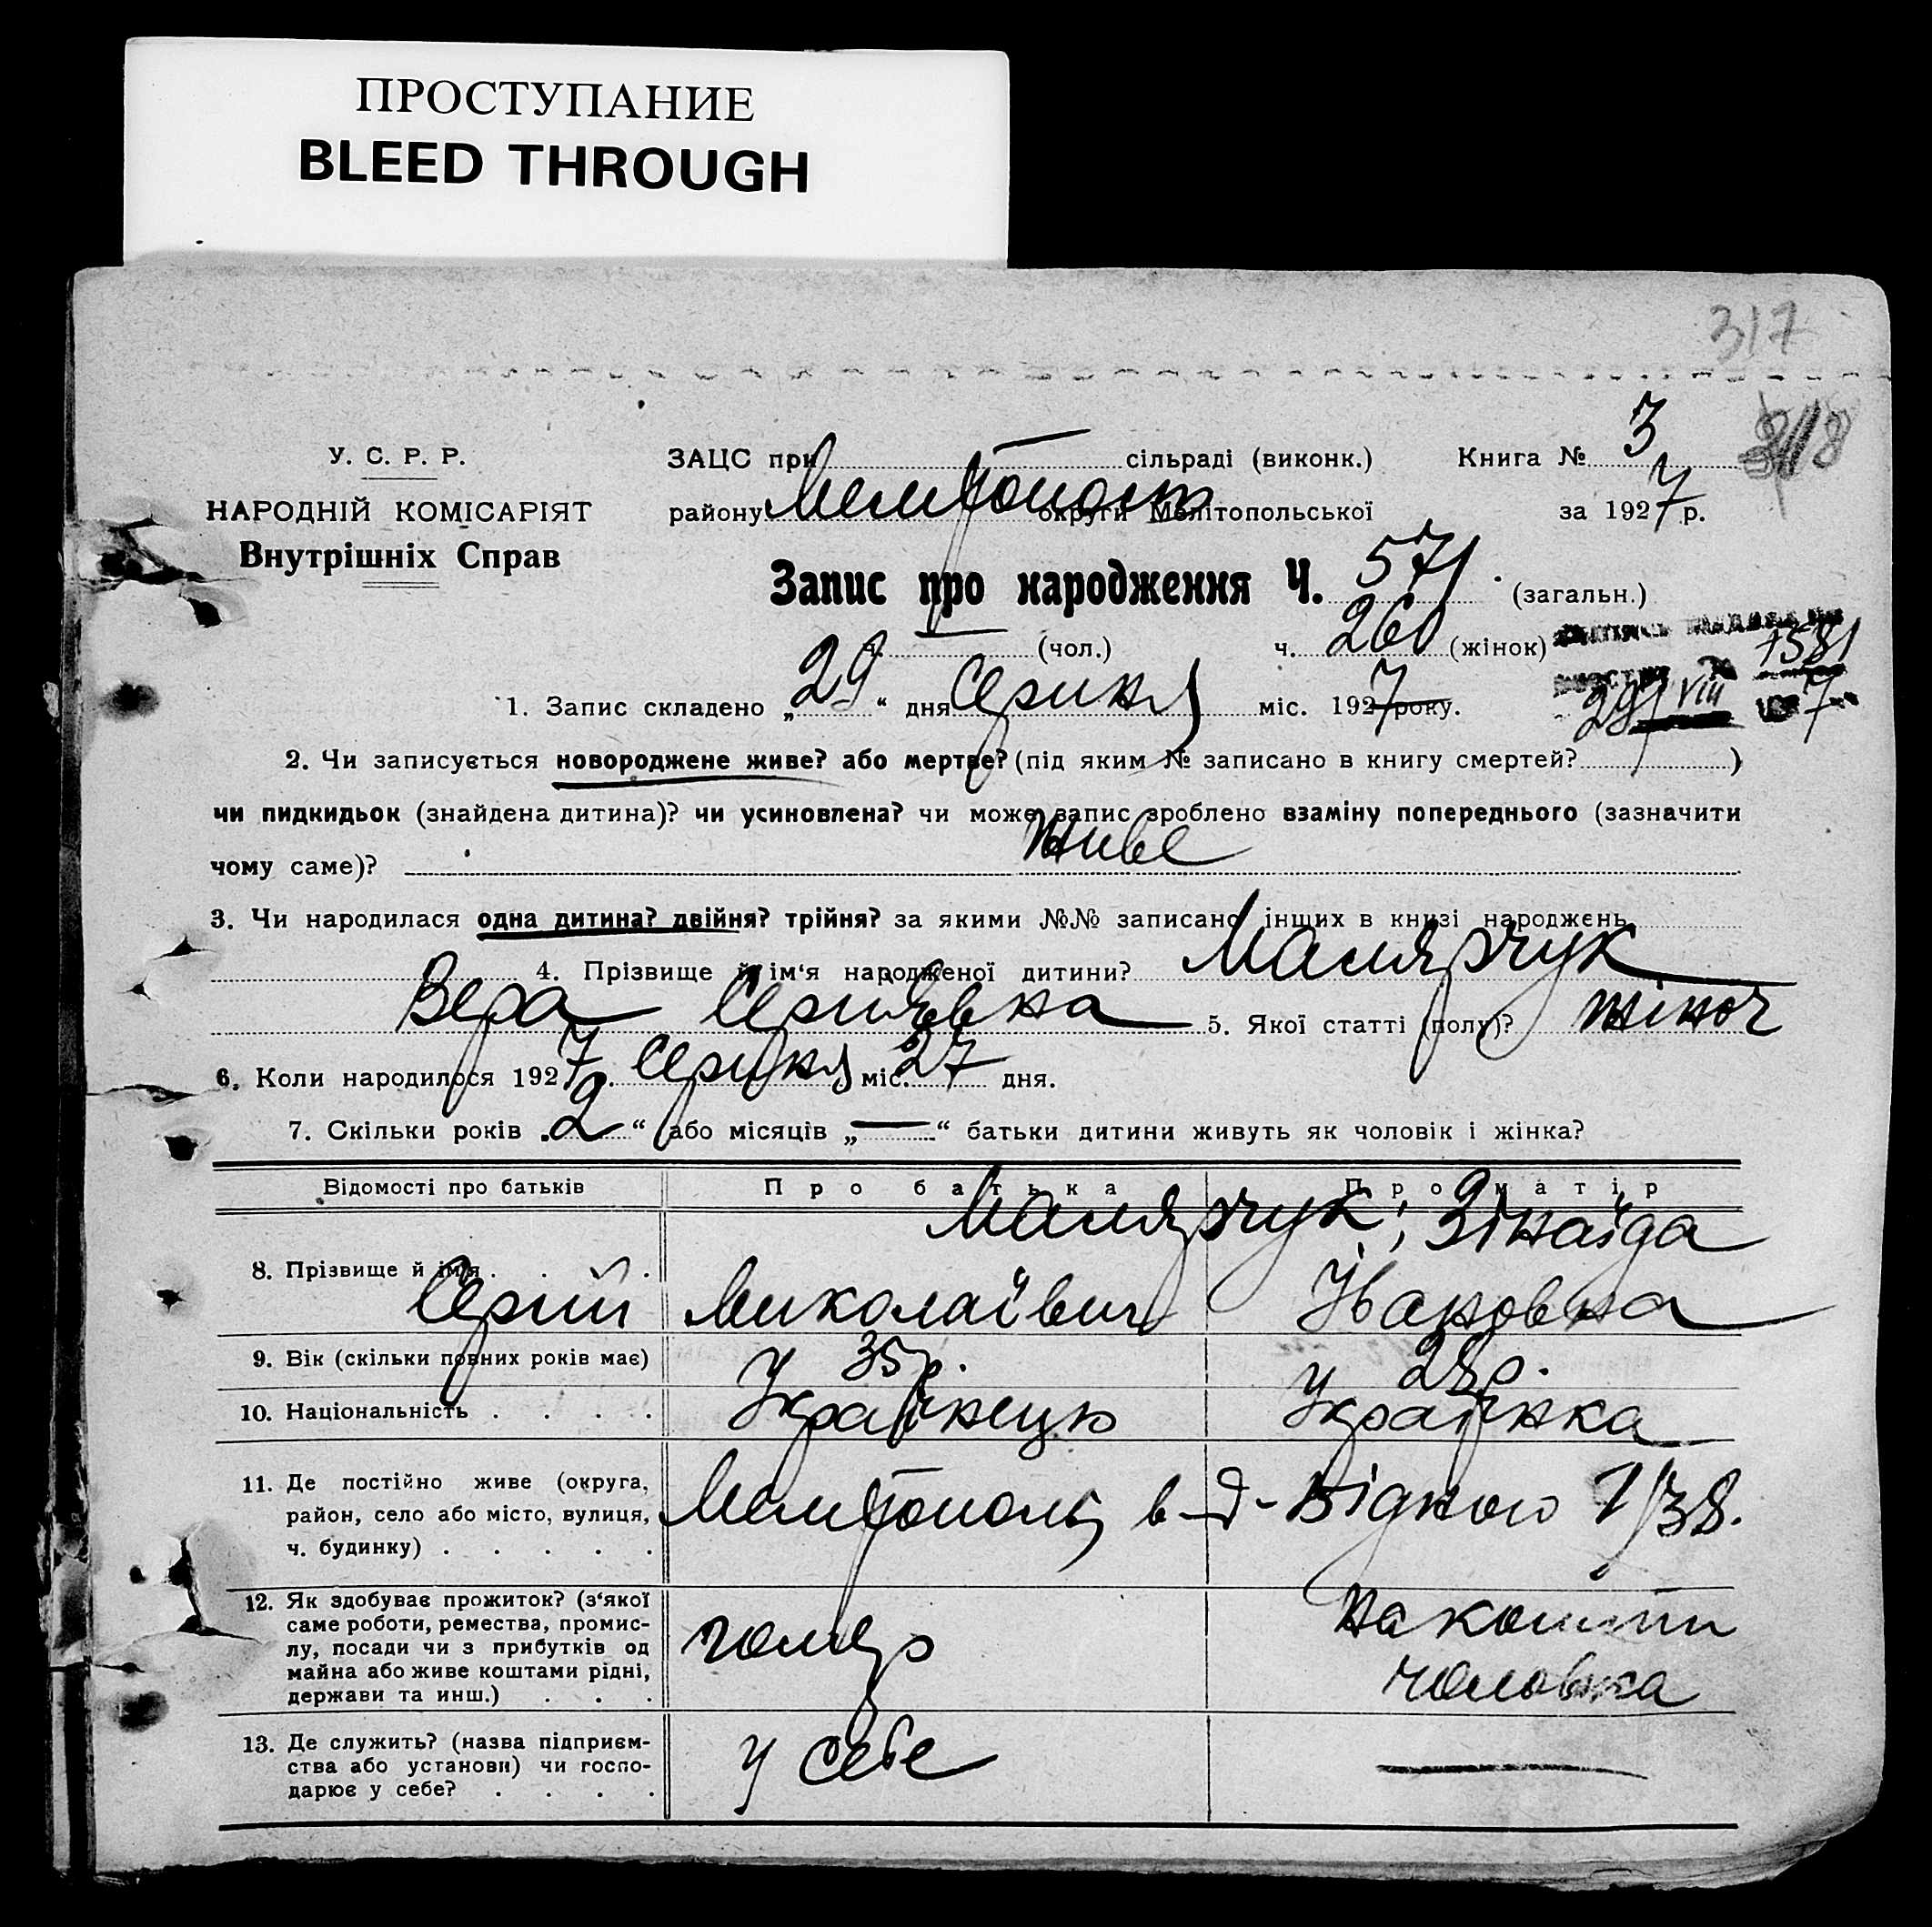 ПРОСТУПАНИЕ
BLEED THROUGH
317
318
У. С. Р. Р.
НАРОДНІЙ КОМІСАРІЯТ
Внутрішніх Справ
ЗАЦС при сільраді (виконк.) Книга № 3
району округи Мелітопольської за 1927 р.
Запис про народження Ч. 571. (загальн.)
ч. — (чол.) ч. 260 (жінок)
1581
1. Запис складено „29“ дня Серпня міс. 1927 року.
29/VIII 7
2. Чи записується новороджене живе? або мертве? (під яким № записано в книгу смертей? )
чи пидкидьок (знайдена дитина)? чи усиновлена? чи може запис зроблено взаміну попереднього (зазначити
чому саме)? живе
3. Чи народилася одна дитина? двійня? трійня? за якими №№ записано інших в книзі народжень
4. Прізвище й ім‘я народженої дитини? Малярчук
Вера 5. Якої статті (полу)? жіноч
6. Коли народилося 1927. Серпня міс. 27 дня.
7. Скільки років „2“ або місяців „—“ батьки дитини живуть як чоловік і жінка?
Відомості про батьків Про батька Про матір
Малярчук; Зінаїда
8. Прізвище й ім‘я . . . .
Сергій Миколаївич Івановна
9. Вік (скільки повних років має) 35 р. 28 р.
10. Національність . . . . Українець Українка
11. Де постійно живе (округа,
район, село або місто, вулиця,
ч. будинку) . . . . .
Мелітополь в-д-Бідного 1/38.
12. Як здобуває прожиток? (з‘якої
саме роботи, ремества, промис-
лу, посади чи з прибутків од
майна або живе коштами рідні,
держави та инш.) . . .
голяр
на кошти
чоловіка
13. Де служить? (назва підприєм-
ства або установи) чи госпо-
дарює у себе? . . . .
у себе —